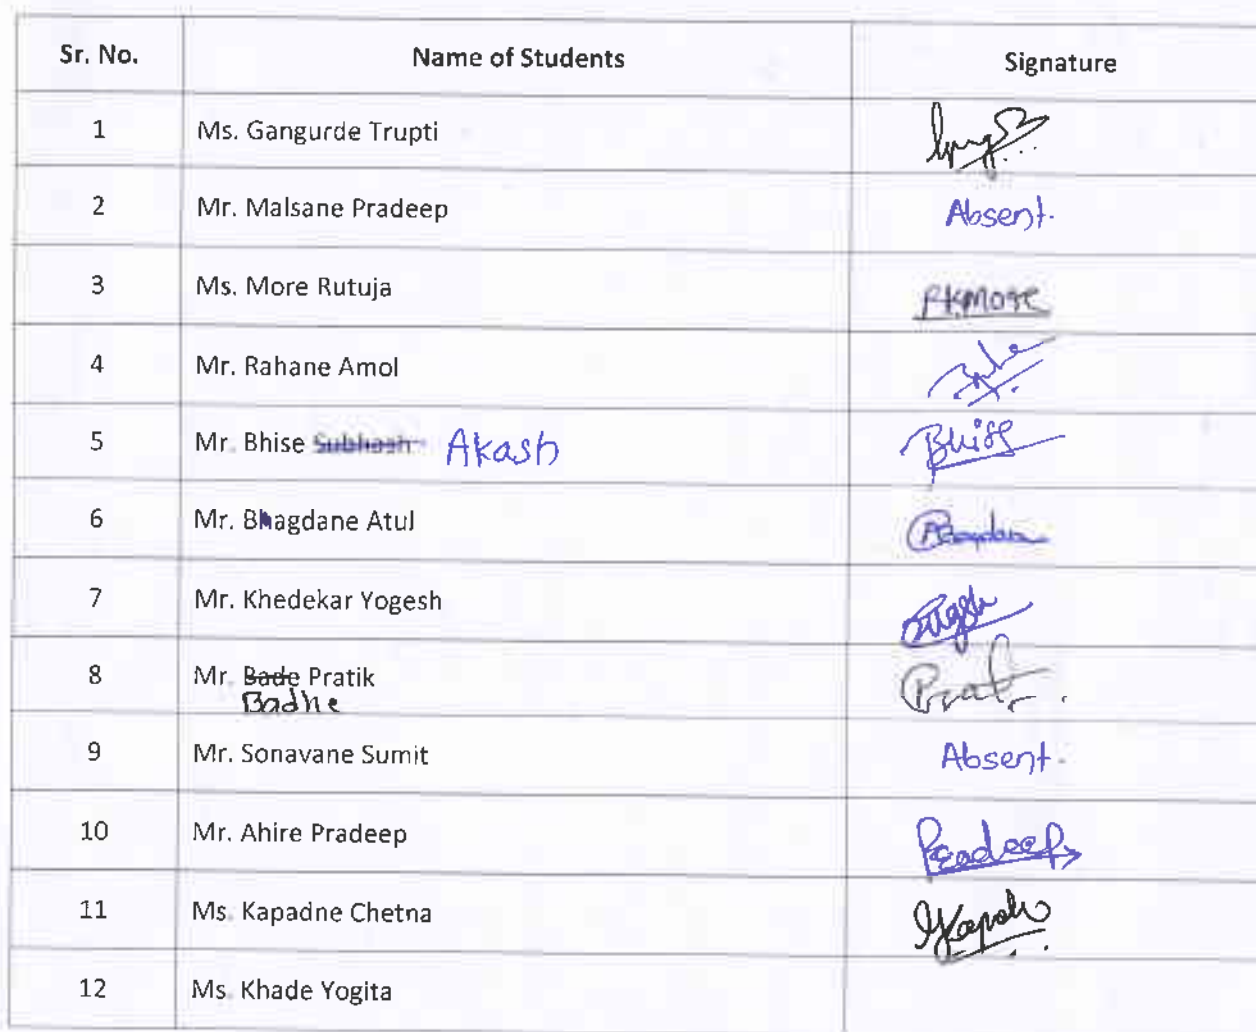 Sr. No. Name of Students Signature
1 Ms. Gangurde Trupti
2 Mr. Malsane Pradeep Absent.
3 Ms. More Rutuja RKMore
4 Mr. Rahane Amol
5 Mr. Bhise Subhash Akash Bhise
6 Mr. Bhagdane Atul
7 Mr. Khedekar Yogesh
8 Mr. Bade Pratik
Badhe
9 Mr. Sonavane Sumit Absent.
10 Mr. Ahire Pradeep Pradeep
11 Ms. Kapadne Chetna
12 Ms. Khade Yogita